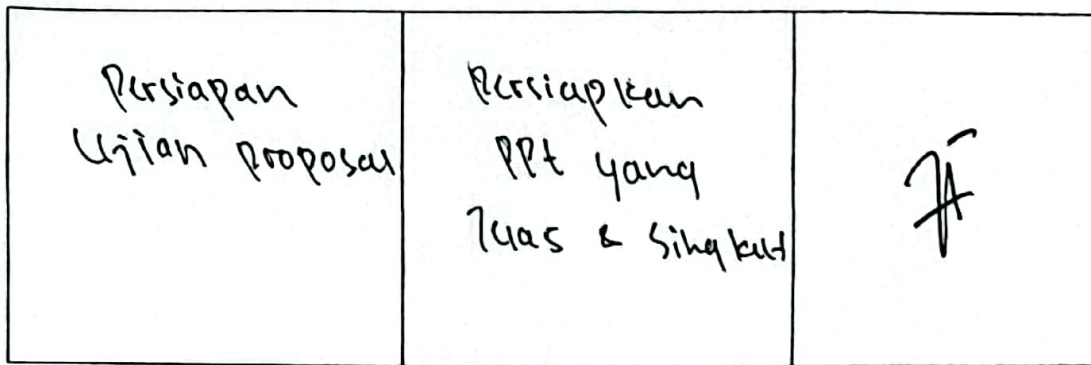 Persiapan
Ujian proposal
Persiapkan
PPt yang
luas & singkat